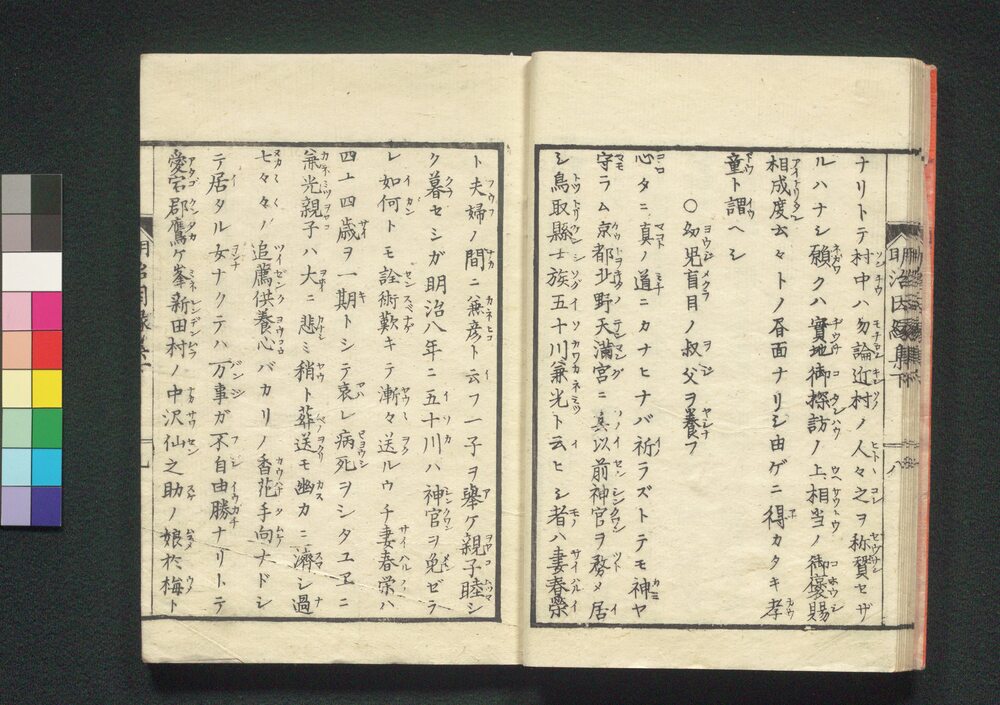 ナリトテ村中ハ勿論近村ノ人々之ヲ称賛セザ
ルハナシ願クハ實地御探訪ノ上相当ノ御褒賜
相成度云々トノ書面ナリシ由ゲニ得カタキ孝
童ト謂ヘシ
○幼児盲目ノ叔父ヲ養フ
心タニ真ノ道ニカナヒナバ祈ラズトテモ神ヤ
守ラム京都北野天満宮ニ以前神官ヲ務メ居
シ鳥取縣士族五十川兼光ト云ヒシ者ハ妻春榮
ト夫婦ノ間ニ兼彦ト云フ一子ヲ擧ケ親子睦シ
ク暮セシガ明治八年ニ五十川ハ神官ヲ免ゼラ
レ如何トモ詮術歎キテ漸々送ルウチ妻春栄ハ
四十四歳ヲ一期トシテ哀レ病死ヲシタヱヱニ
兼光親子ハ大ニ悲ミ稍ト葬送モ幽カニ濟シ過
七々々ノ追薦供養心バカリノ香花手向ナドシ
テ居タル女ナクテハ万事ガ不自由勝ナリトテ
愛宕郡鷹ケ峯新田村ノ中沢仙之助ノ娘於梅ト